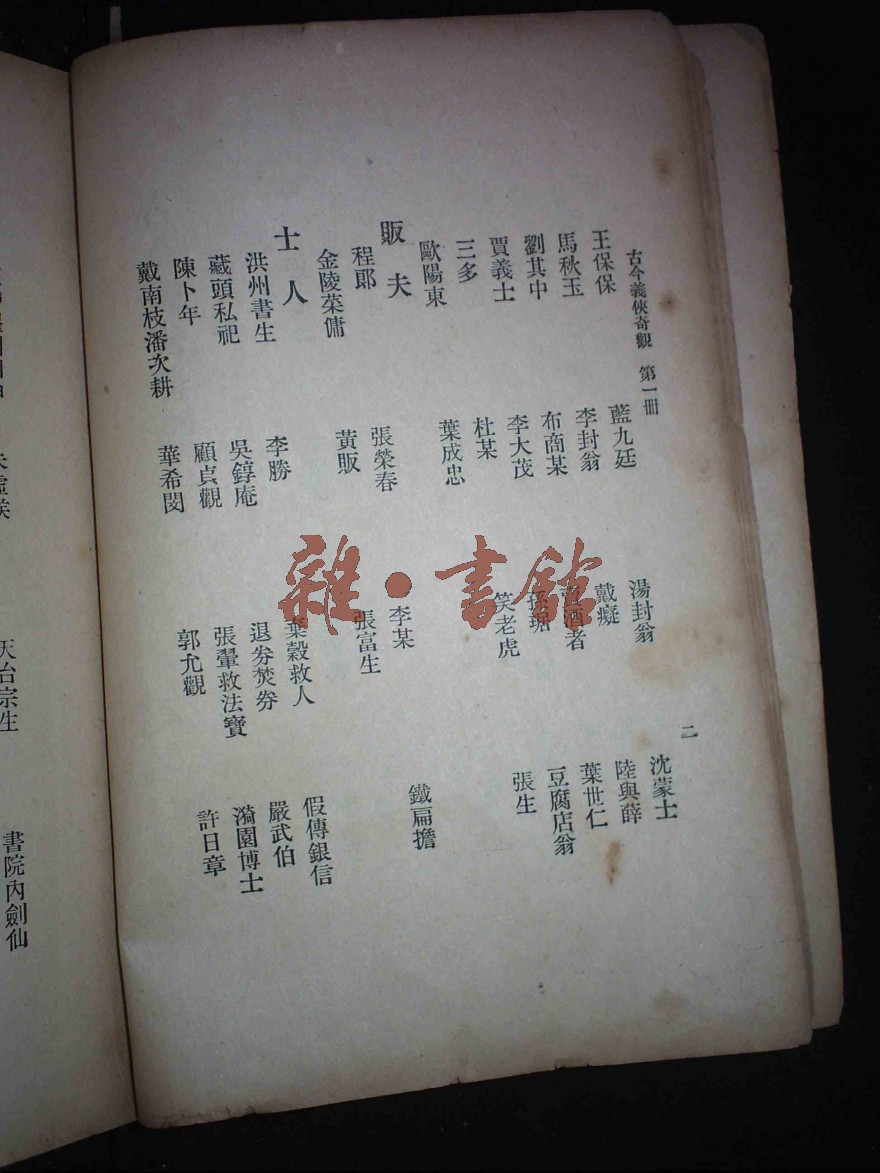 古今義俠奇觀 第一冊 二
王保保 藍九廷 湯封翁 沈蒙士
馬秋玉 李封翁 戴癡 陸與薛
劉其中 布商某 酒者 葉世仁
賈義士 李大茂 豆腐店翁
三多 杜某 笑老虎 張生
歐陽東 葉成忠
販夫
程郎 張榮春 李某 鐵扁擔
金陵菜傭 黃販 張富生
士人
洪州書生 李勝 棄穀救人 假傳銀信
藏頭私祀 吳錞庵 退券焚券 嚴武伯
陳卜年 顧貞觀 張翬救法寶 漪園博士
戴南枝潘次耕 華希閔 郭允觀 許日章
天台宗生 書院內劍仙
雜·書館